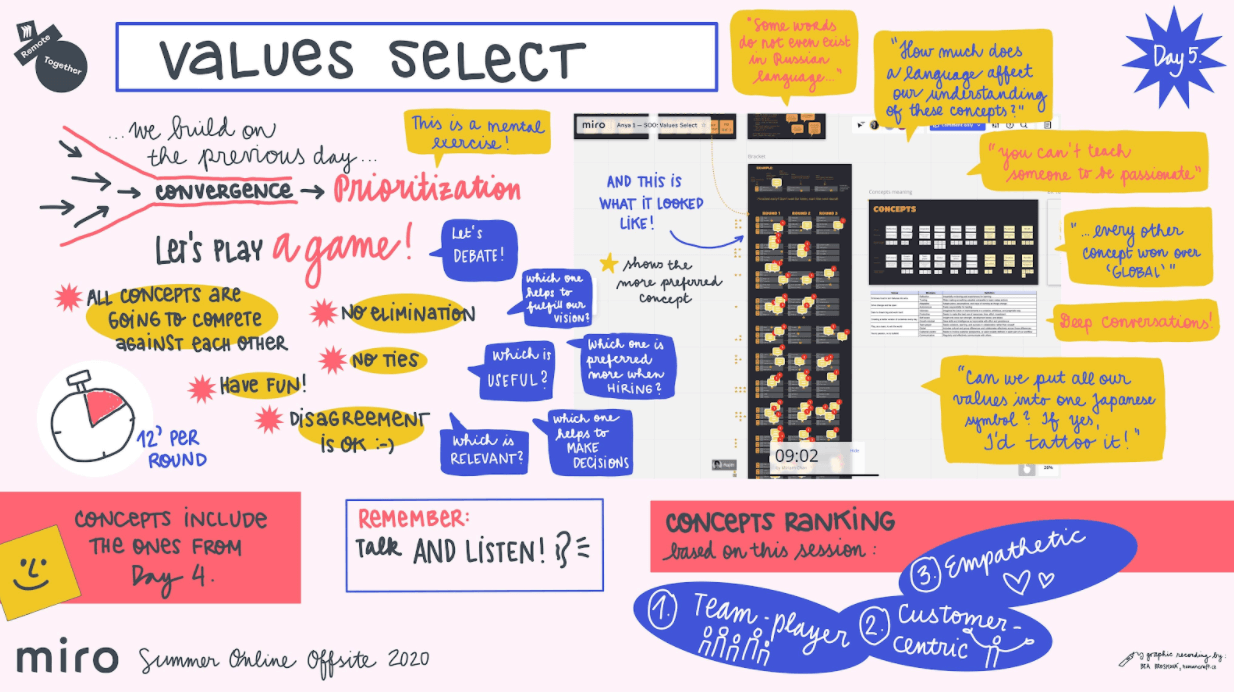 Remote
Together
VALUES SELECT
Day 5.
...we build on
the previous day...
CONVERGENCE → Prioritization
This is a mental
exercise!
LET'S PLAY a game!
Let's
DEBATE!
ALL CONCEPTS ARE
GOING TO COMPETE
AGAINST EACH OTHER
NO ELIMINATION
NO TIES
HAVE FUN!
DISAGREEMENT
IS OK :-)
12' PER
ROUND
which one
helps to
fulfill our
VISION?
Which is
USEFUL?
Which one is
preferred
more when
HIRING?
Which is
RELEVANT?
which one
helps to
MAKE
DECISIONS
AND THIS IS
WHAT IT LOOKED
LIKE!
shows the
more preferred
concept
miro
Anya 1 — SOO: Values Select
Bracket
ROUND 1 ROUND 2 ROUND 3
Concepts meaning
CONCEPTS
09:02
"Some words
do not even exist
in Russian
language..."
"How much does
a language affect
our understanding
of these concepts?"
"you can't teach
someone to be passionate"
"...every other
concept won over
'GLOBAL'"
Deep conversations!
"Can we put all our
values into one Japanese
symbol? If yes,
I'd tattoo it!"
CONCEPTS INCLUDE
THE ONES FROM
Day 4.
REMEMBER:
Talk AND LISTEN!
CONCEPTS RANKING
based on this session:
1. Team-player
2. Customer-
centric
3. Empathetic
miro Summer Online Offsite 2020
graphic recording by: